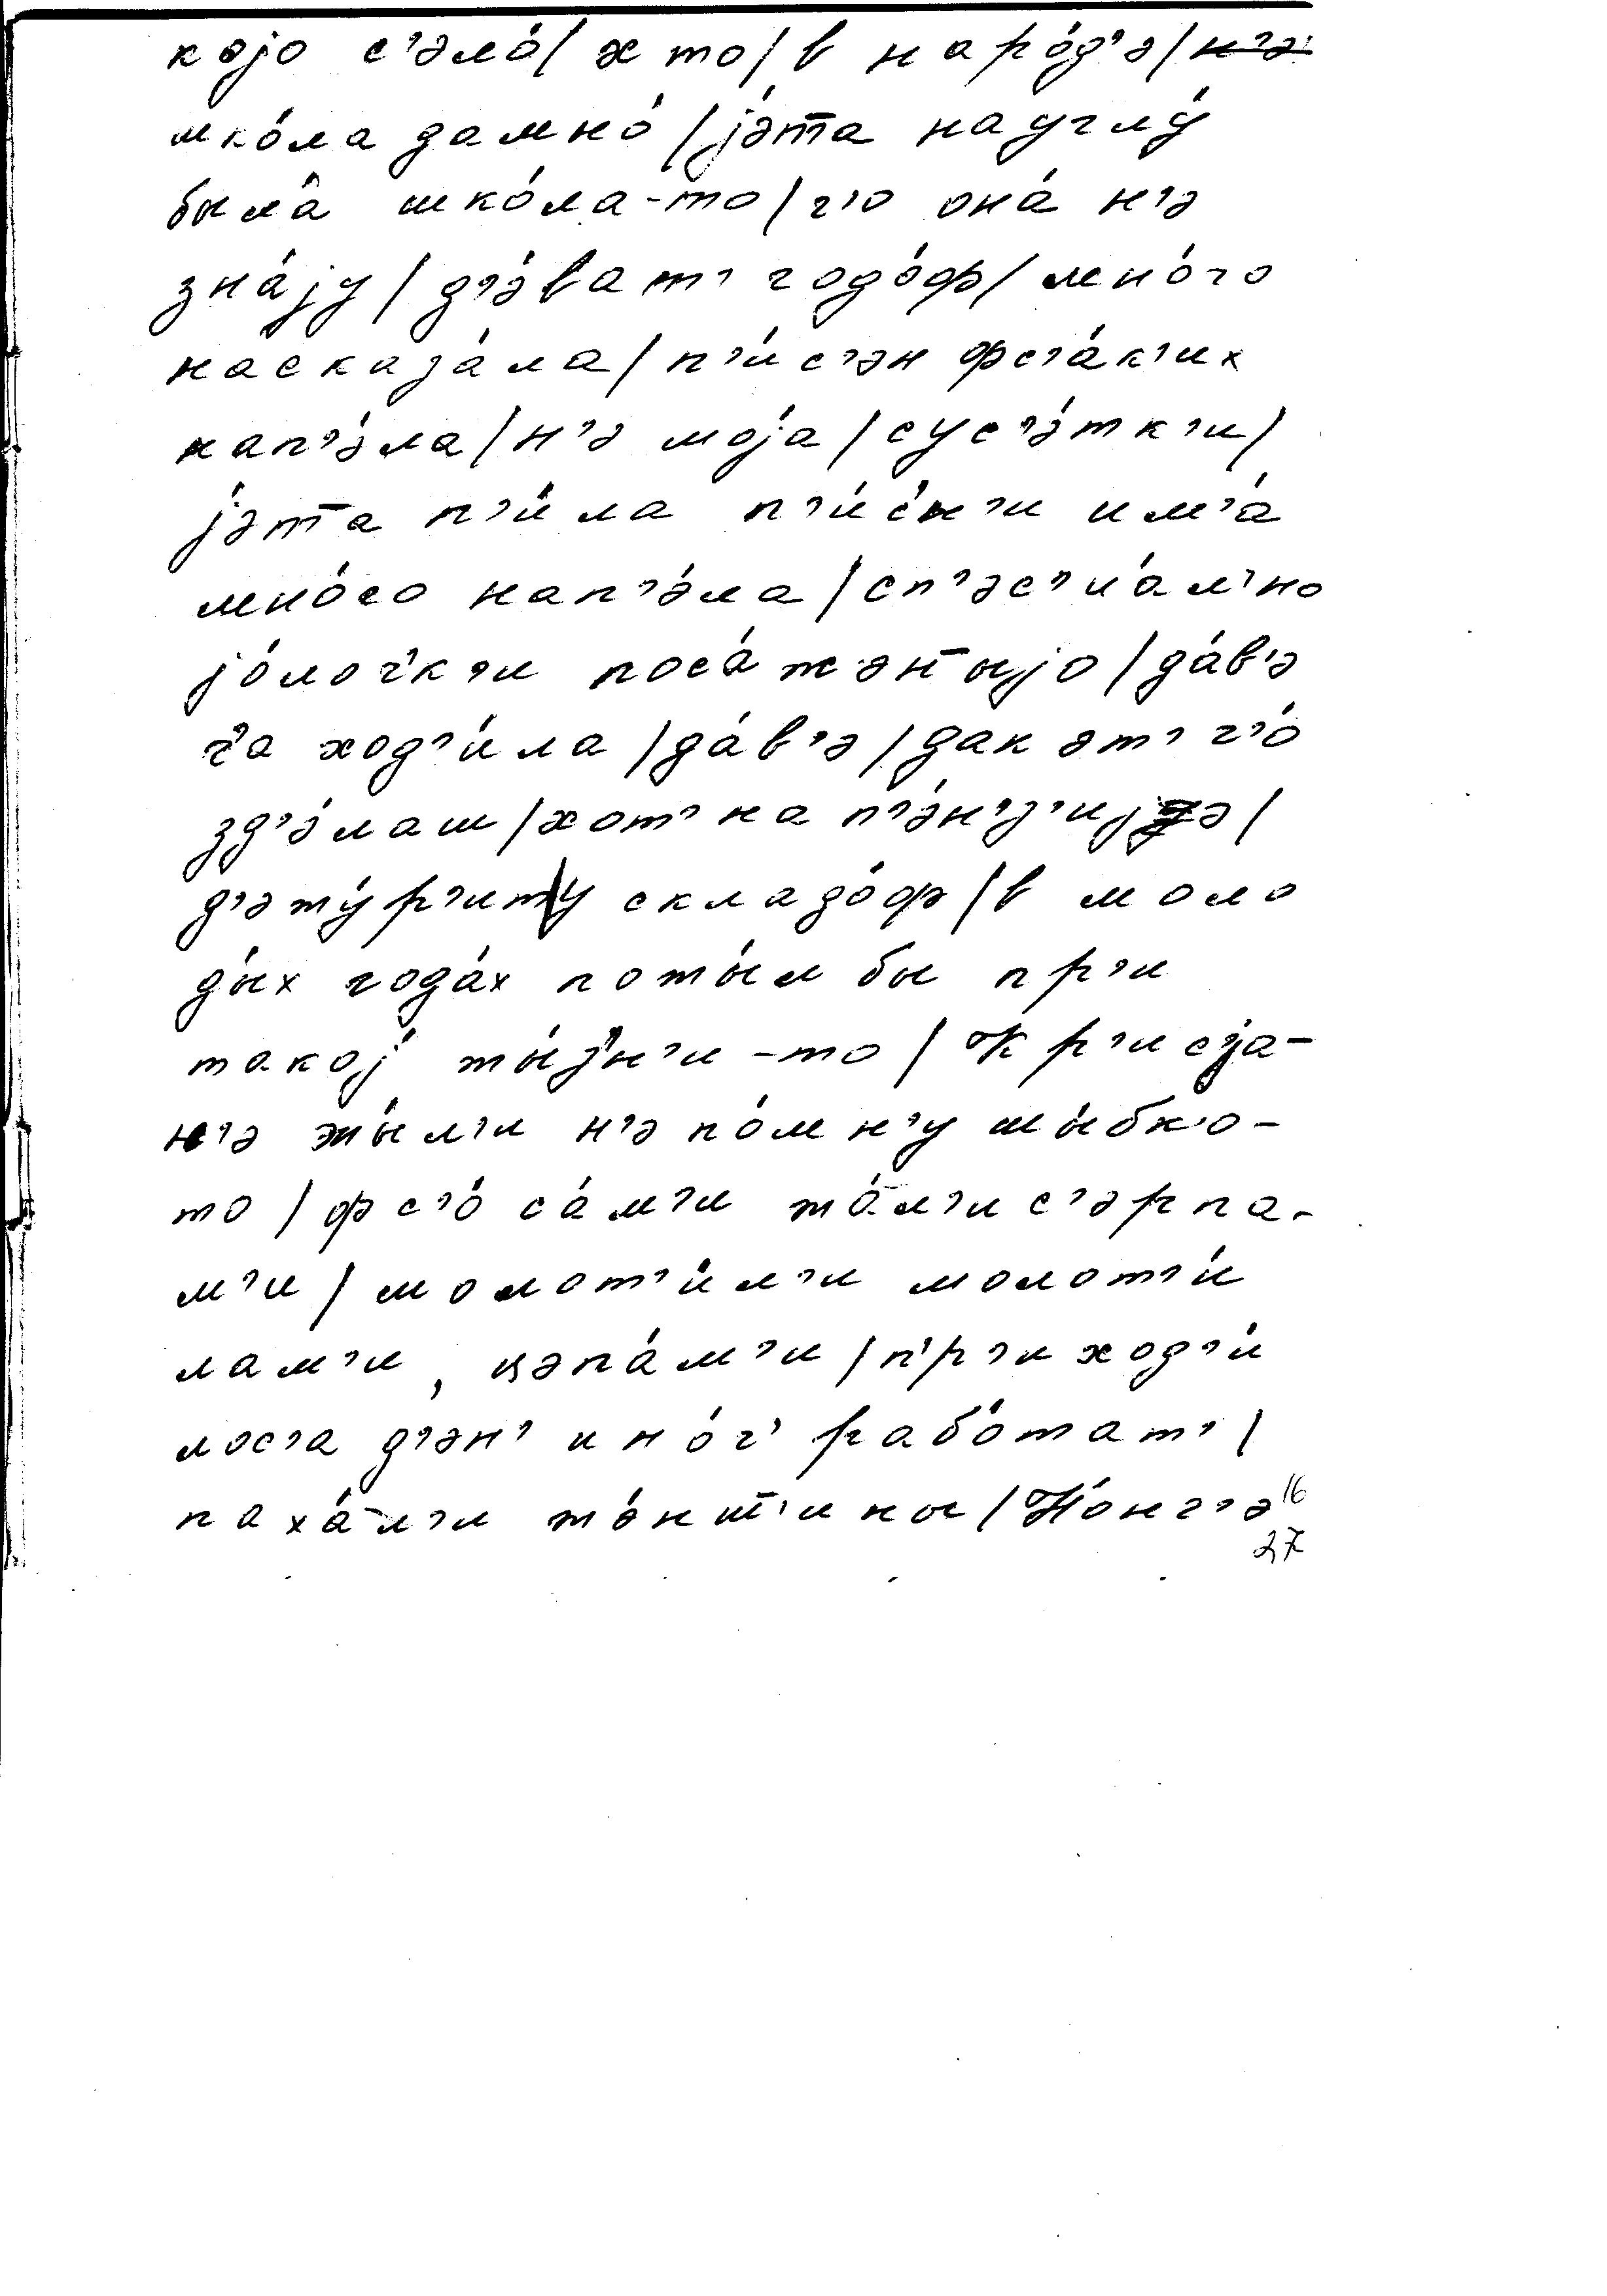 кэjо с'эло́/ х то/ в наро́д'э/ н'э
шко́ла дамно́ /jэ́т̄а на углу́
была́ шко́ла-то/ г'о она́ н'э
зна́jу / д'э́ват' годо́ф/ мно́го
насказа́ла/ п'и́с'эн фс'а́к'их
нап'э́ла/ н'э моjа́ /сус'э́тк'и/
jэ́т̄а п'и́ла п'и́с'н'и им'а́
мно́го нап'э́ла /сп'эс'иа́л'но
jо́лоч'к'и поса́жэн̄ыjо /да́в'э
ч'а ход'и́ла /да́в'э /дак эт' ч'о́
зд'э́лаш /хот' на п'э́н'з'иjэ /
д'эту́р'иту складо́ф /в моло
ды́х года́х поты́м бы пр'и
такоj́ жы́з'н'и-то / Кр'исjа-
н'э жы́л'и н'э по́мн'у шы́бко-
то / фс'о́ са́м'и жа́л'и с'эрпа-
м'и / молот'и́л'и молот'и́
лам'и, цэпа́м'и /пр'иход'и́
лос'а д'эн' и но́ч' рабо́тат' /
паха́л'и жэ́нш̄'ины /Но́нч'э 16
27